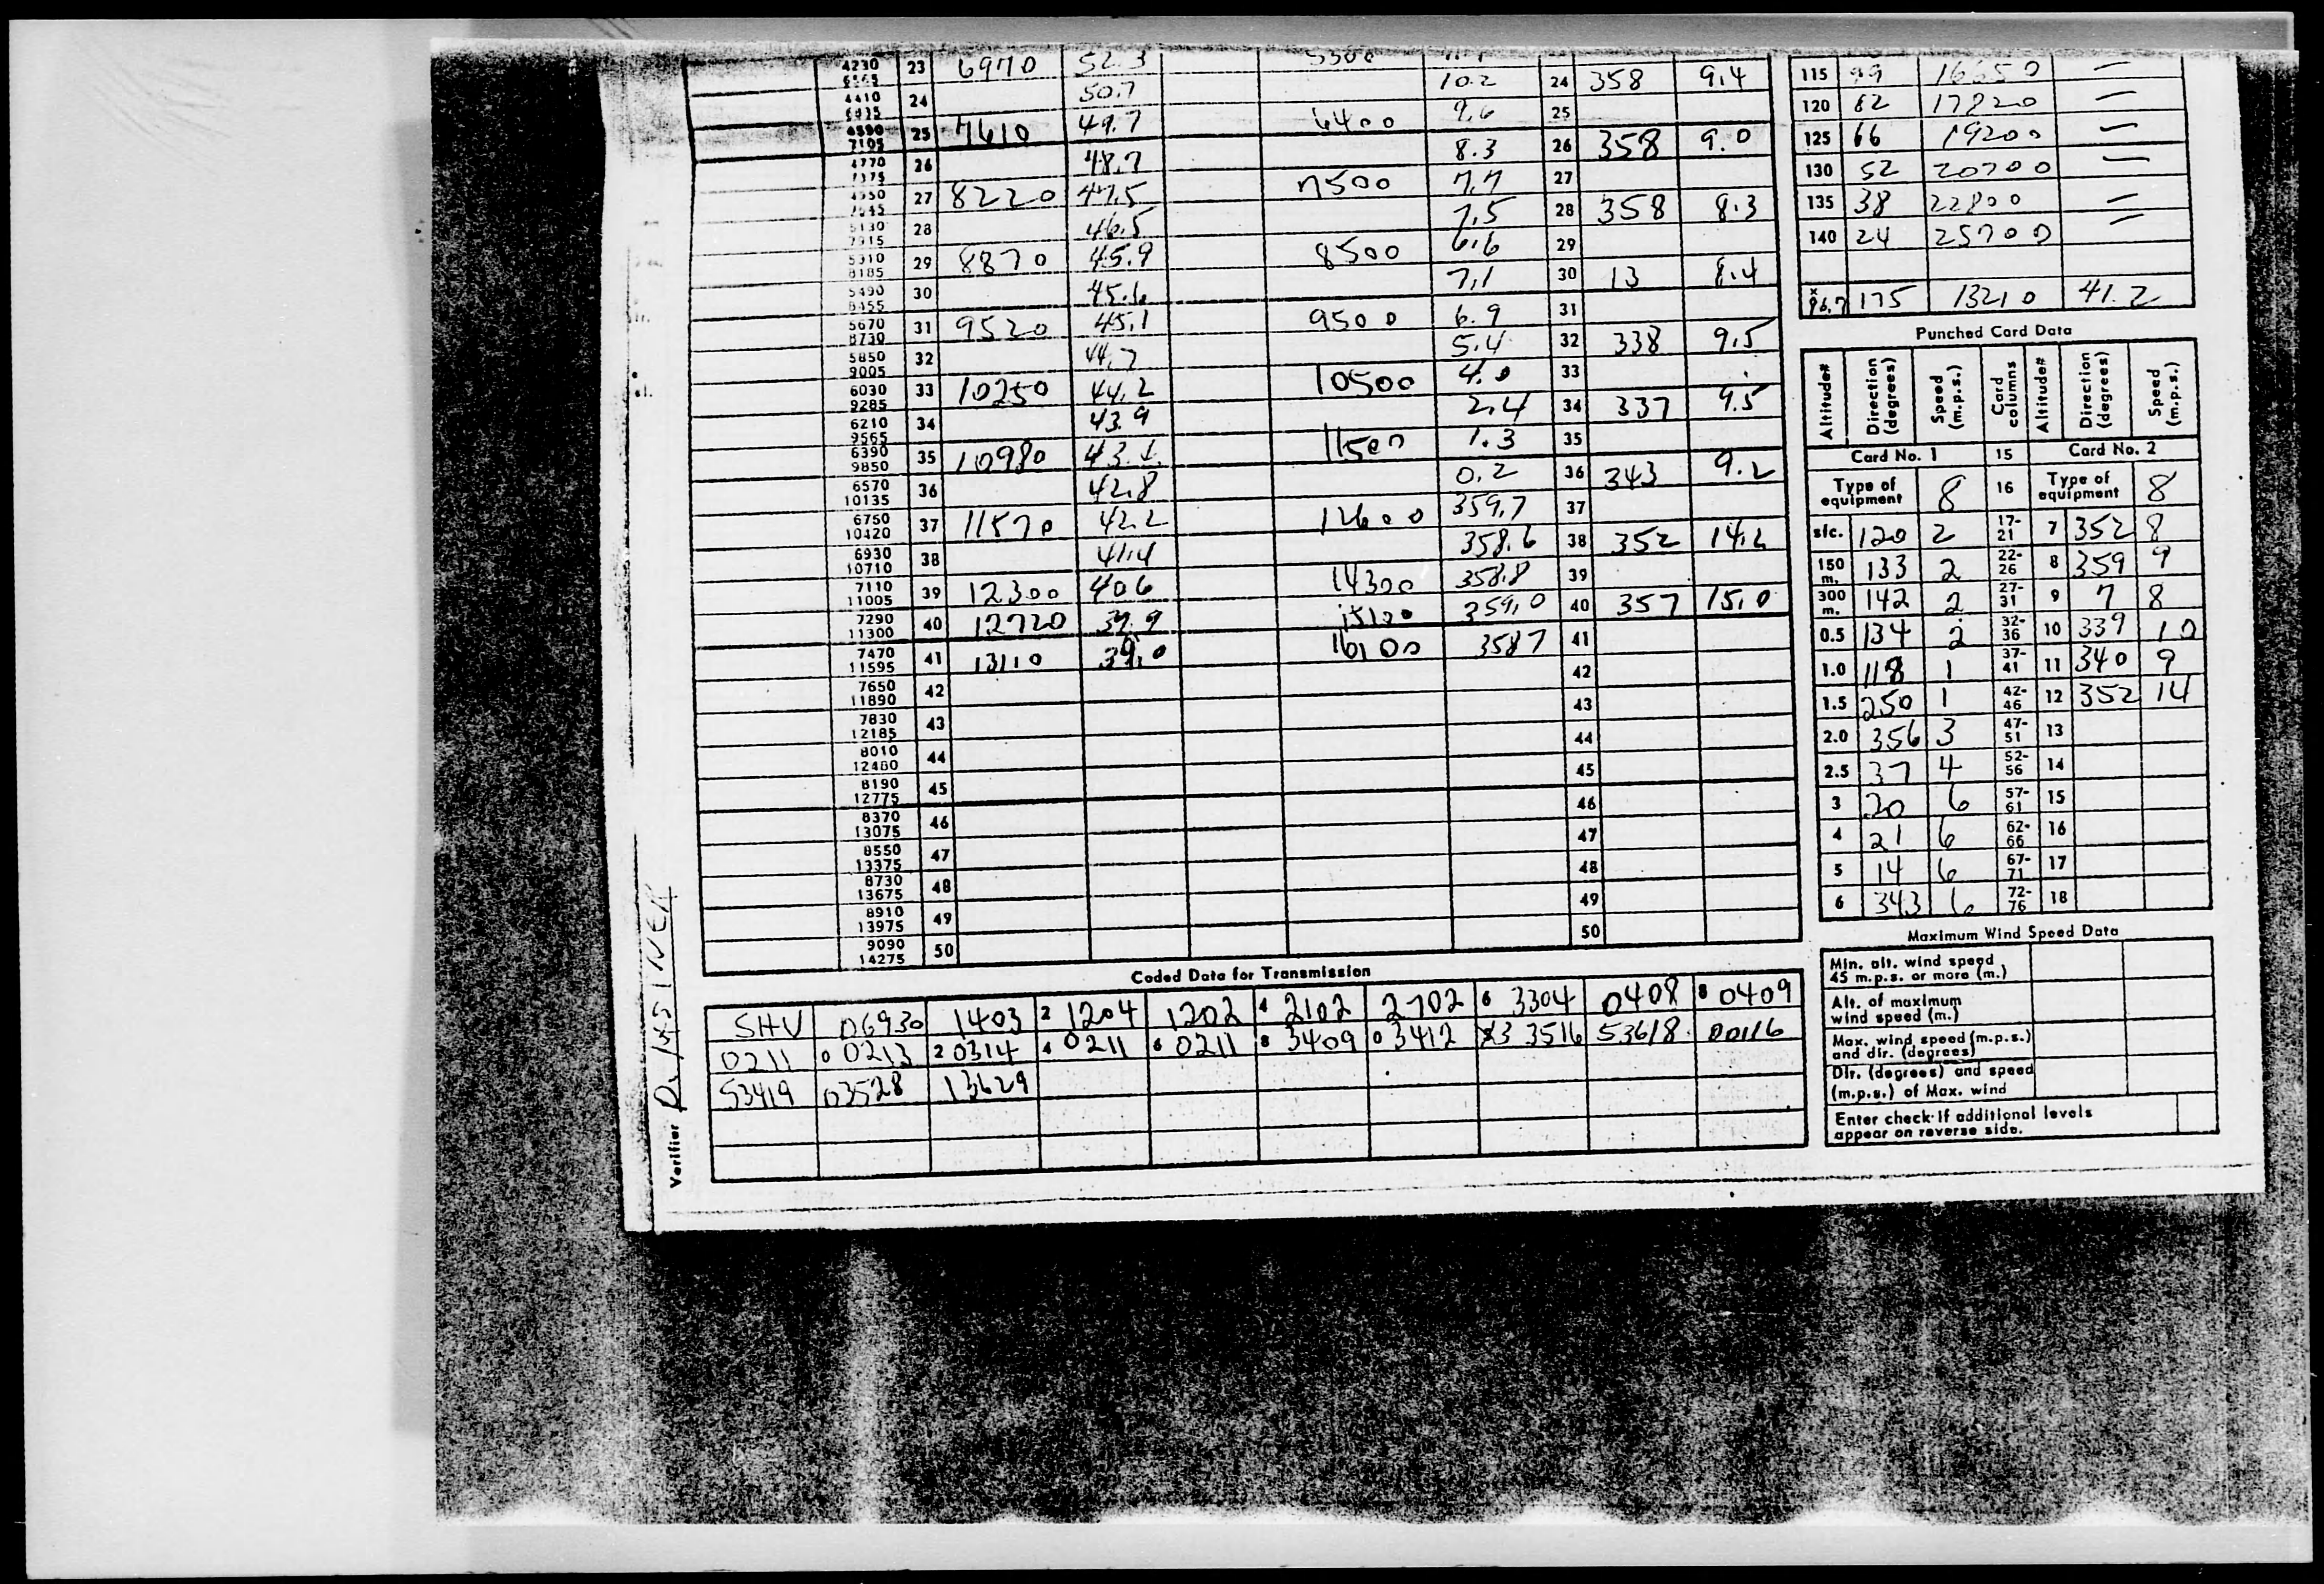 4230 23 6970 52.3 5300
10.2 24 358 9.4 115 99 16650 —
4410 24 50.7
9.6 25 120 82 17820 —
4590 7105 25 7610 49.7 6400
8.3 26 358 9.0 125 66 19200 —
4770 7375 26 48.7
7.7 27 130 52 20700 —
4950 7645 27 8220 47.5 7500
7.5 28 358 8.3 135 38 22800 —
5130 7915 28 46.5
6.6 29 140 24 25700 —
5310 8185 29 8870 45.9 8500
7.1 30 13 8.4
5490 8455 30 45.6
6.9 31 x 96.7 175 13210 41.2
5670 8730 31 9520 45.1 9500
5.4 32 338 9.5
5850 9005 32 44.7
4.0 33
6030 9285 33 10250 44.2 10500
2.4 34 337 9.5
6210 9565 34 43.9
1.3 35
6390 9850 35 10980 43.4 11500
0.2 36 343 9.2
6570 10135 36 42.8
359.7 37
6750 10420 37 11570 42.2 12600
358.6 38 352 14.2
6930 10710 38 41.4
358.8 39
7110 11005 39 12300 40.6 14300
359.0 40 357 15.0
7290 11300 40 12720 39.9 15100
358.7 41
7470 11595 41 13110 39.0 16100
7650 11890 42 42
7830 12185 43 43
8010 12480 44 44
8190 12775 45 45
8370 13075 46 46
8550 13375 47 47
8730 13675 48 48
8910 13975 49 49
9090 14275 50 50
Punched Card Data
Altitude# Direction (degrees) Speed (m.p.s.) Card columns Altitude# Direction (degrees) Speed (m.p.s.)
Card No. 1 15 Card No. 2
Type of equipment 8 16 Type of equipment 8
sfc. 120 2 17-21 7 352 8
150 m. 133 2 22-26 8 359 9
300 m. 142 2 27-31 9 7 8
0.5 134 2 32-36 10 339 10
1.0 118 1 37-41 11 340 9
1.5 250 1 42-46 12 352 14
2.0 356 3 47-51 13
2.5 37 4 52-56 14
3 20 6 57-61 15
4 21 6 62-66 16
5 14 6 67-71 17
6 343 6 72-76 18
Maximum Wind Speed Data
Min. alt. wind speed 45 m.p.s. or more (m.)
Alt. of maximum wind speed (m.)
Max. wind speed (m.p.s.) and dir. (degrees)
Dir. (degrees) and speed (m.p.s.) of Max. wind
Enter check if additional levels appear on reverse side.
Coded Data for Transmission
SHV 06930 1403 2 1204 1202 4 2102 2702 6 3304 0408 8 0409
0211 0 0213 2 0314 4 0211 6 0211 8 3409 0 3412 3 3516 53618 00116
53419 03528 13629
Verifier